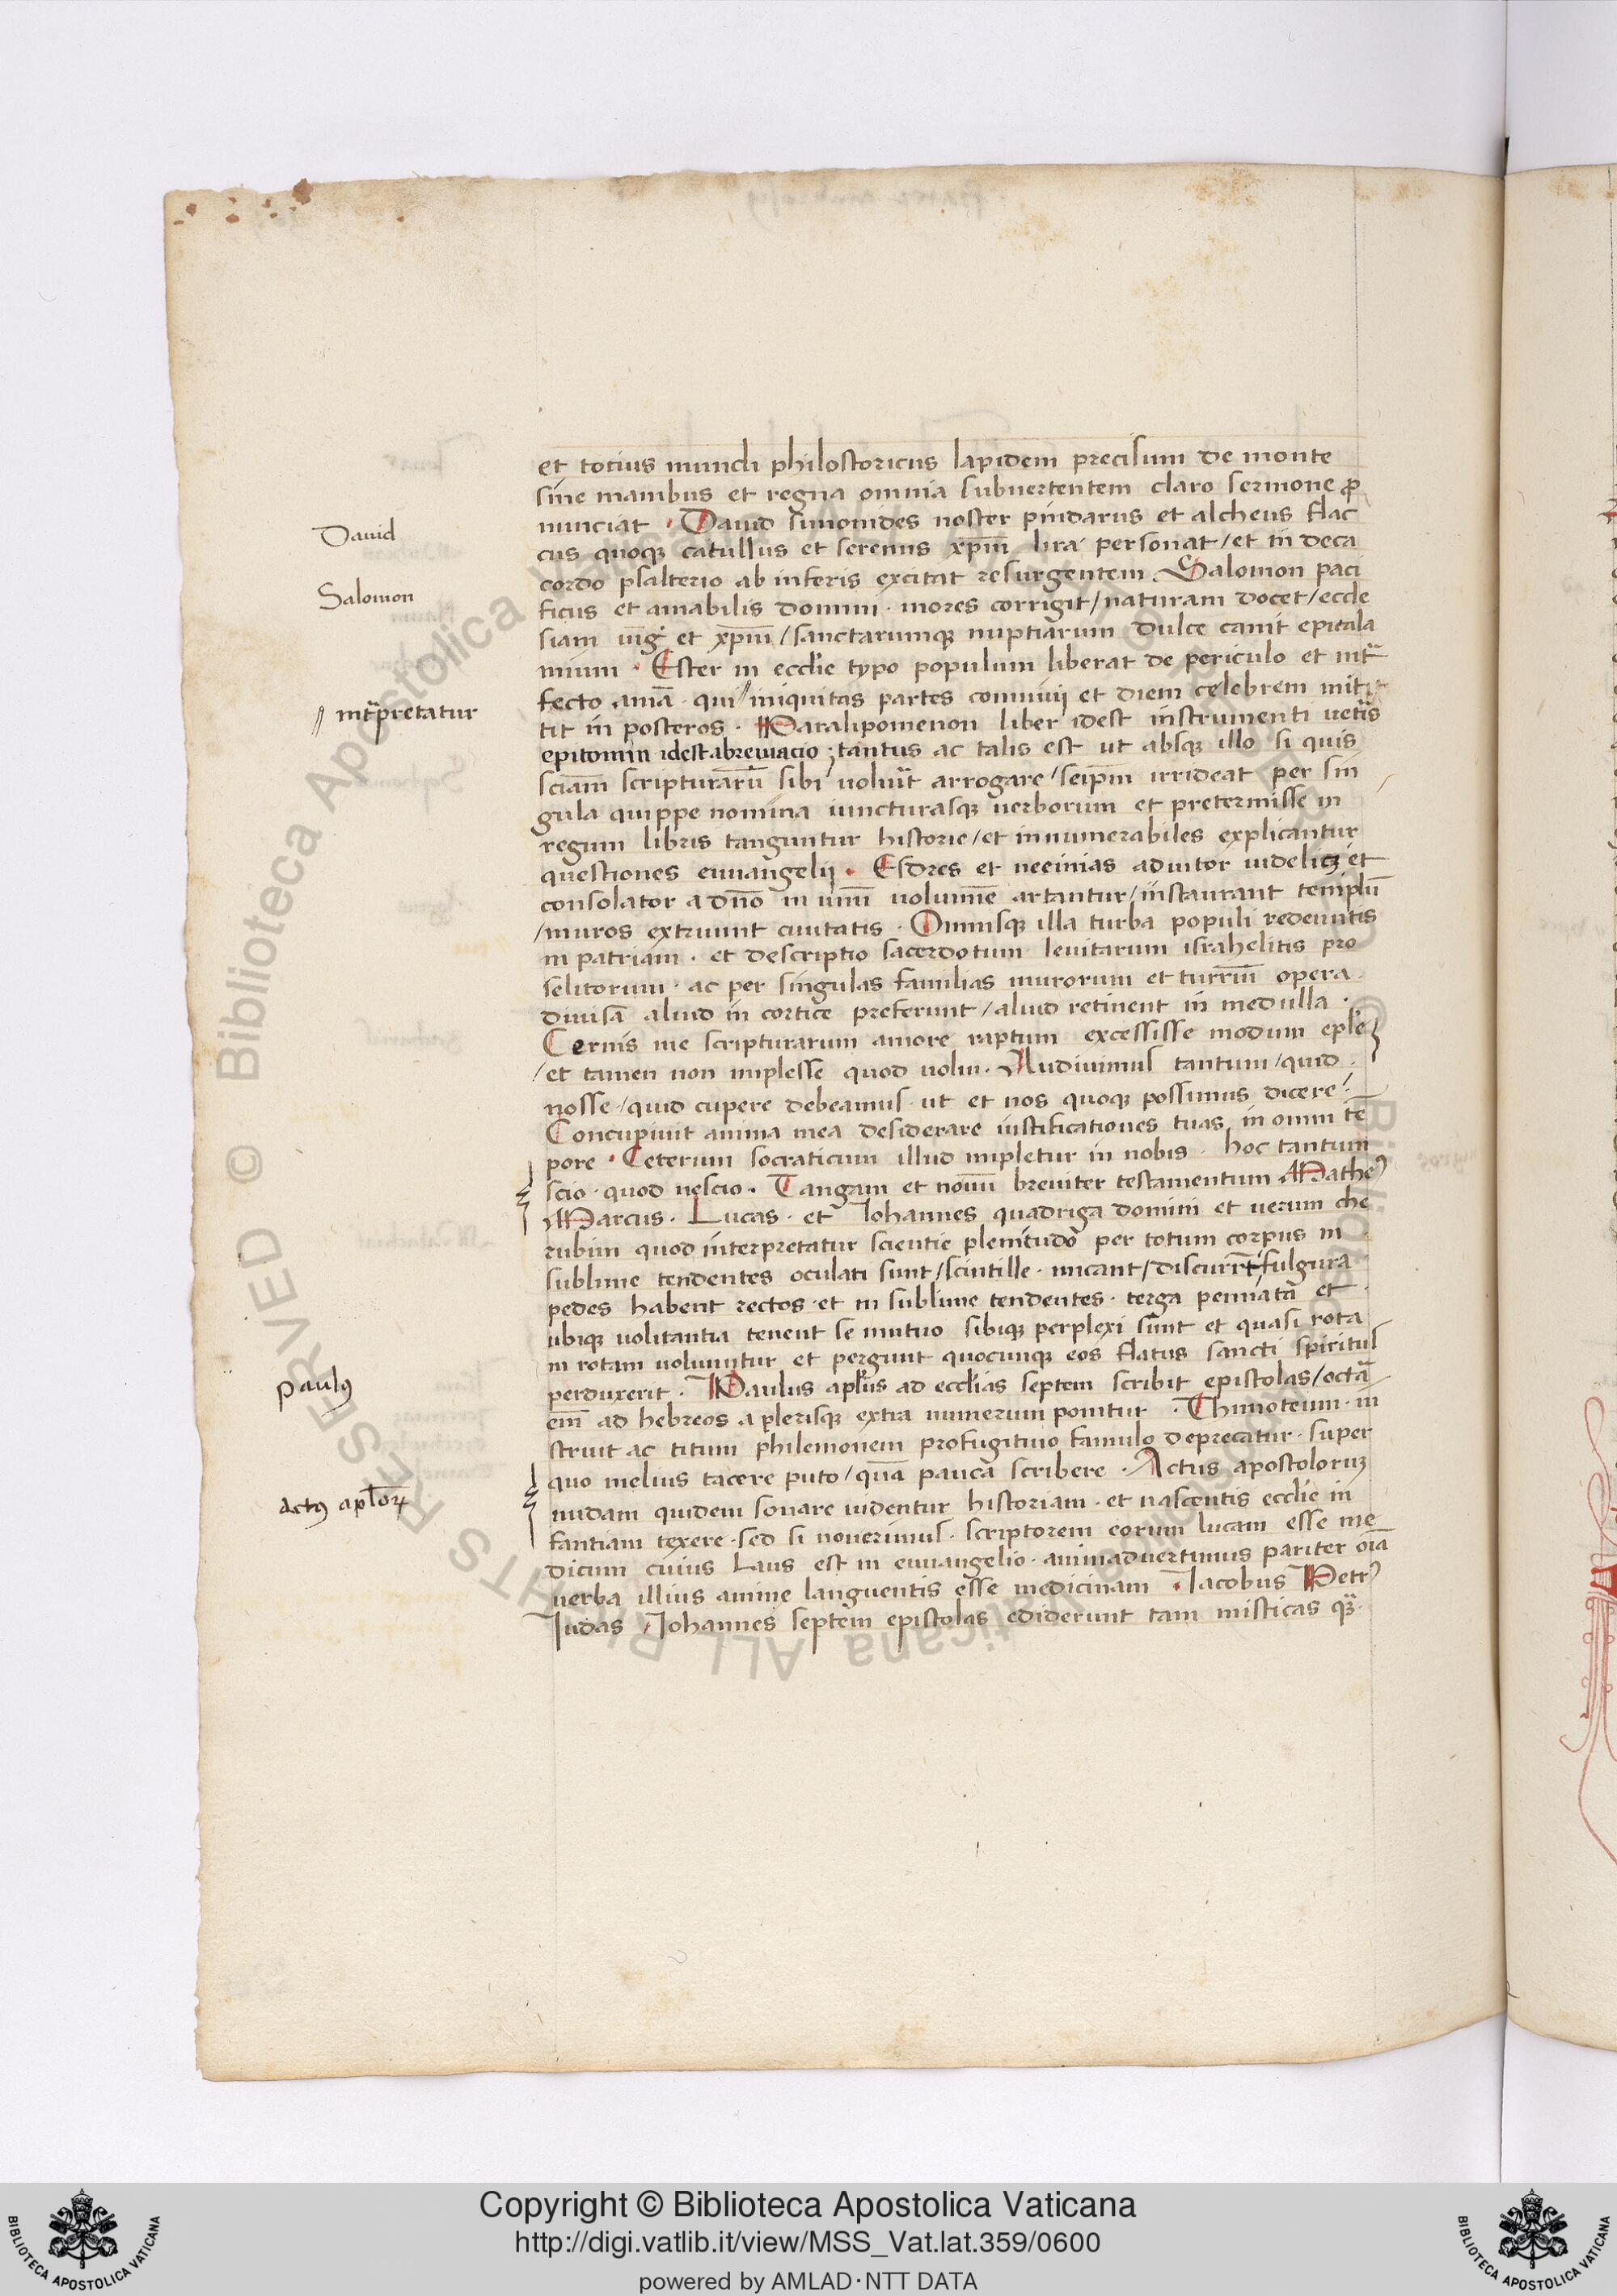 et totius mundi philostoricus lapidem precisum de monte
sine manibus et regna omnia subuertentem claro sermone ꝓ
nunciat · Dauid simonides noster pindarus et alcheus flac
cus quoqꝫ catullus et serenus xp̄m lira personat / et in deca
cordo psalterio ab inferis excitat resurgentem. Salomon paci
ficus et amabilis domini · mores corrigit / naturam docet / eccle
siam iūgit et xp̄m / sanctarumqꝫ nuptiarum dulce canit epitala
mium · Ester in eccl̄ie typo populum liberat de periculo et int̄
fecto amā · qui // iniquitas partes conuiuij et diem celebrem mit
tit in posteros · Paralipomenon liber idest instrumenti uet̄is
epitomin idest abreuiacio ; tantus ac talis est ut absqꝫ illo si quis
sciām scripturarū sibi uoluīt arrogare / seip̄m irrideat per sin
gula quippe nomina iuncturasqꝫ uerborum et pretermisse in
regum libris tanguntur historie / et innumerabiles explicantur
questiones euuangelij · Esdres et neeinias adiutor uidelicꝫ et
consolator a dn̄o in unū uolumē artantur / instaurant templū
/ muros extruunt ciuitatis · Omnisqꝫ illa turba populi redeuntis
in patriam · et descriptio sacerdotum leuitarum israhelitis pro
selitorum · ac per singulas familias murorum et turriū opera
diuisā aliud in cortice preferunt / aliud retinent in medulla ·
Cernis me scripturarum amore raptum excessisse modum epl̄e
/ et tamen non implesse quod uolui · Audiuimus tantum / quid
nosse / quid cupere debeamus · ut et nos quoqꝫ possimus dicere /
Concupiuit anima mea desiderare iustificationes tuas in omni tē
pore · Ceterum socraticum illud impletur in nobis · hoc tantum
scio · quod nescio · Tangam et nouū breuiter testamentum Matheꝰ
Marcus · Lucas · et Iohannes quadriga domini et uerum che
rubim quod interpretatur scientie plenitudo per totum corpus in
sublime tendentes oculati sunt / scintille · micant / discurrt̄ fulgura
pedes habent rectos · et in sublime tendentes · terga pennata et
ubiqꝫ uolitantia tenent se mutuo sibiqꝫ perplexi sunt et quasi rota
in rotam uoluuntur et pergunt quocunqꝫ eos flatus sancti spiritus
perduxerit · Paulus apl̄us ad eccl̄ias septem scribit epistolas / octā
em̄ ad hebreos a plerisqꝫ extra numerum ponitur · Thimoteum · in
struit ac titum philemonem profugitiuo famulo deprecatur · super
quo melius tacere puto / quā pauca scribere · Actus apostoloruꝫ
nudam quidem sonare uidentur historiam · et nascentis eccl̄ie in
fantiam texere · sed si nouerimus · scriptorem eorum lucam esse me
dicum cuius laus est in euuangelio · animaduertimus pariter oīa
uerba illius anime languentis esse medicinam · Iacobus Petrꝰ
Iudas Iohannes septem epistolas ediderunt tam misticas qꝫ̄
Dauid
Salomon
// int̄pretatur
Paulꝰ
Actꝰ apl̄oꝝ
Copyright © Biblioteca Apostolica Vaticana
http://digi.vatlib.it/view/MSS_Vat.lat.359/0600
powered by AMLAD·NTT DATA
BIBLIOTECA APOSTOLICA VATICANA
BIBLIOTECA APOSTOLICA VATICANA
© Biblioteca Apostolica Vaticana ALL RIGHTS RESERVED